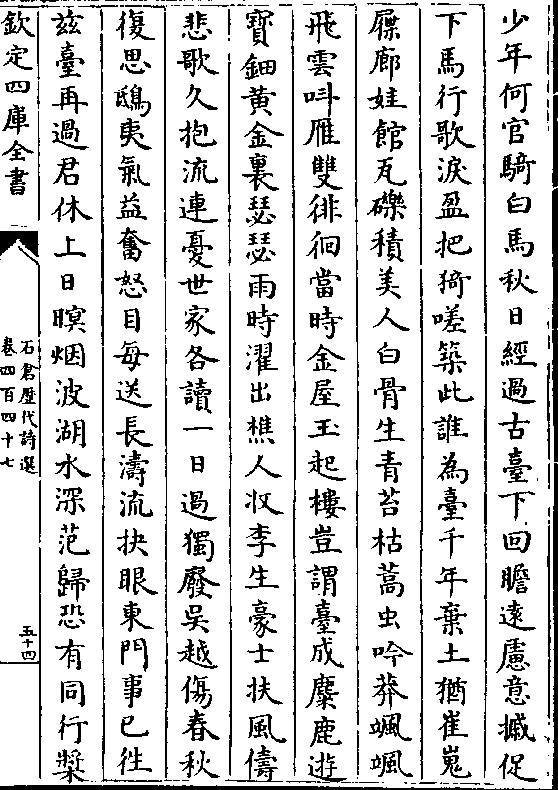 少年何官騎白馬秋日經過古臺下回瞻遠慮意慽促
下馬行歌淚盈把猗嗟築此誰為臺千年棄土猶崔嵬
屧廊娃館瓦礫積美人白骨生青苔枯蒿虫吟莽颯颯
飛雲呌雁雙徘徊當時金屋玉起樓豈謂臺成麋鹿遊
寶鈿黄金裹瑟瑟雨時濯出樵人収李生豪士扶風儔
悲歌久抱流連憂世家各讀一日過獨廢吳越傷春秋
復思鴟夷氣益奮怒目每送長濤流抉眼東門事已徃
兹臺再過君休上日暝烟波湖水深范歸恐有同行槳
欽定四庫全書
石倉歴代詩選
卷四百四十七
五十四